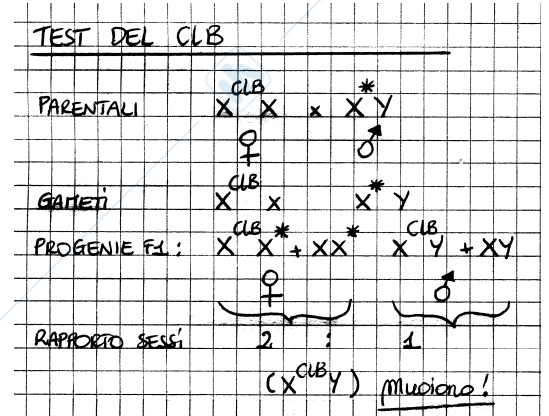 TEST DEL ClB
PARENTALI X^ClB X x X* Y
♀ ♂
GAMETI X^ClB x X* Y
PROGENIE F1: X^ClB X* + XX* X^ClB Y + XY
♀ ♂
RAPPORTO SESSi 2 : 1
(X^ClB Y) Muoiono!